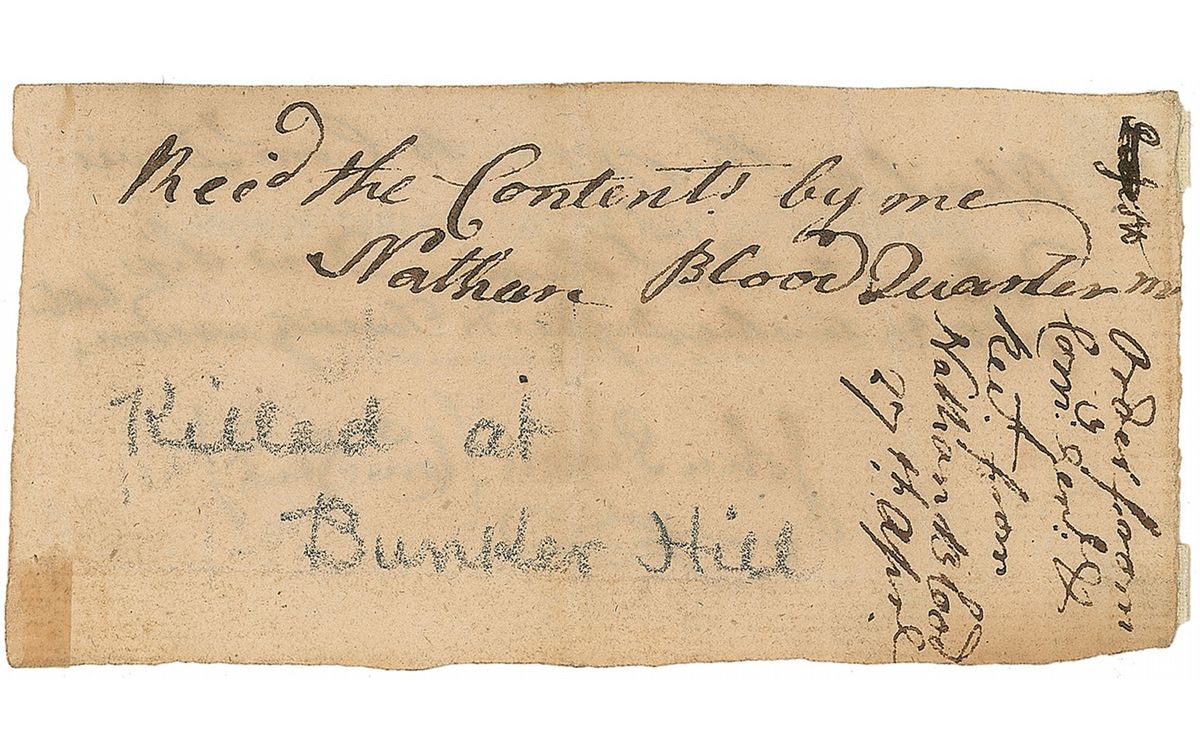 Reci'd the Contents by me
Nathan Blood Quarter m
Killed at
Bunker Hill
Order from
Com: Genl &
Rect from
Nathan Blood
27th April